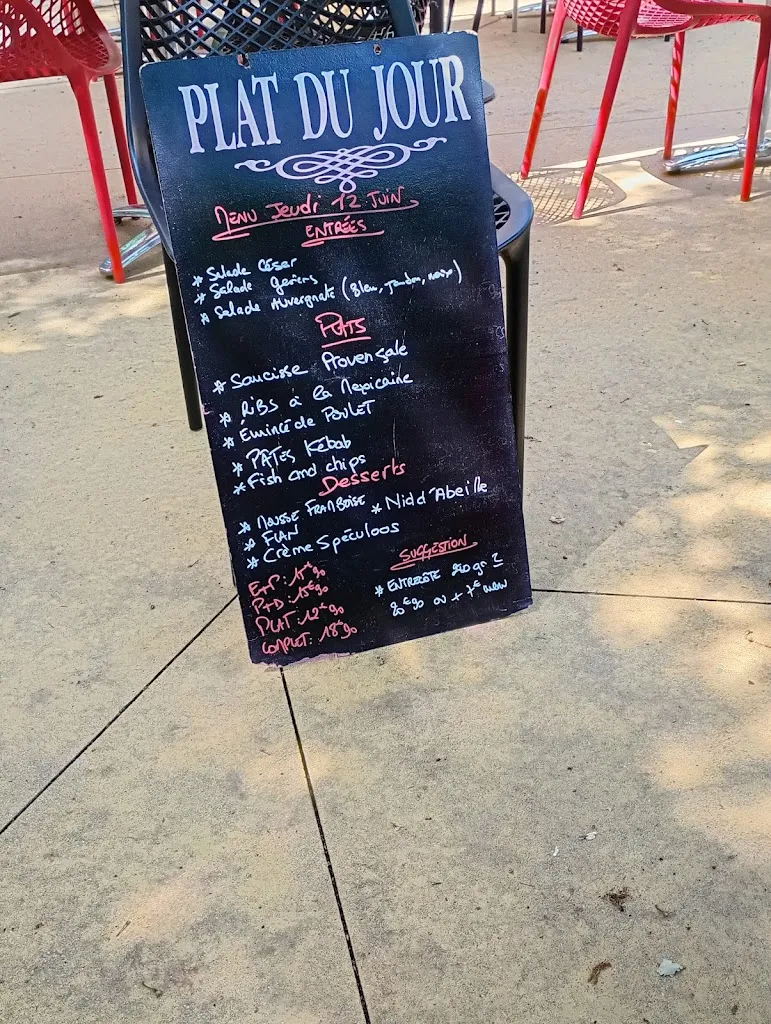 PLAT DU JOUR
MENU Jeudi 12 JUIN
ENTRÉES
* Salade César
* Salade gésiers
* Salade Auvergnate (Bleu, jambon, noix)
PLATS
* Saucisse Provençale
* RiBS à la Mexicaine
* Émincé de POULET
* PÂTES Kebab
* Fish and chips
Desserts
* MOUSSE FRAMBOISE * Nid d'Abeille
* FLAN
* Crème Spéculoos
SUGGESTION
* ENTRECÔTE 250 gr
20€90 ou + 7€ menu
E+P: 17€90
P+D: 15€90
PLAT: 12€90
COMPLET: 18€90